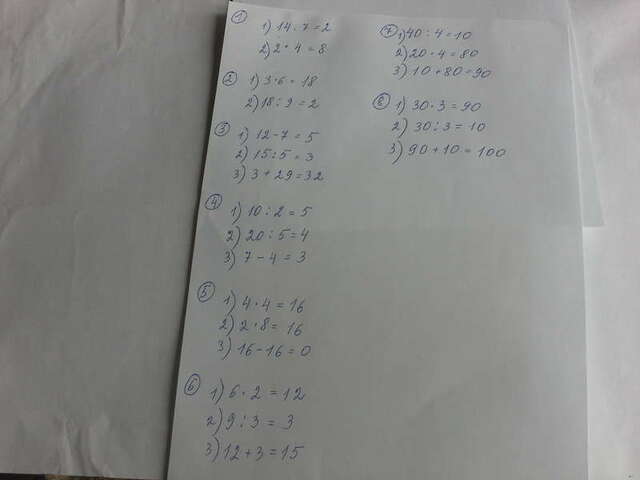 ①
1) 14 : 7 = 2
2) 2 · 4 = 8
② 1) 3 · 6 = 18
2) 18 : 9 = 2
③ 1) 12 - 7 = 5
2) 15 : 5 = 3
3) 3 + 29 = 32
④ 1) 10 : 2 = 5
2) 20 : 5 = 4
3) 7 - 4 = 3
⑤ 1) 4 · 4 = 16
2) 2 · 8 = 16
3) 16 - 16 = 0
⑥ 1) 6 · 2 = 12
2) 9 : 3 = 3
3) 12 + 3 = 15
⑦ 1) 40 : 4 = 10
2) 20 · 4 = 80
3) 10 + 80 = 90
⑧ 1) 30 · 3 = 90
2) 30 : 3 = 10
3) 90 + 10 = 100